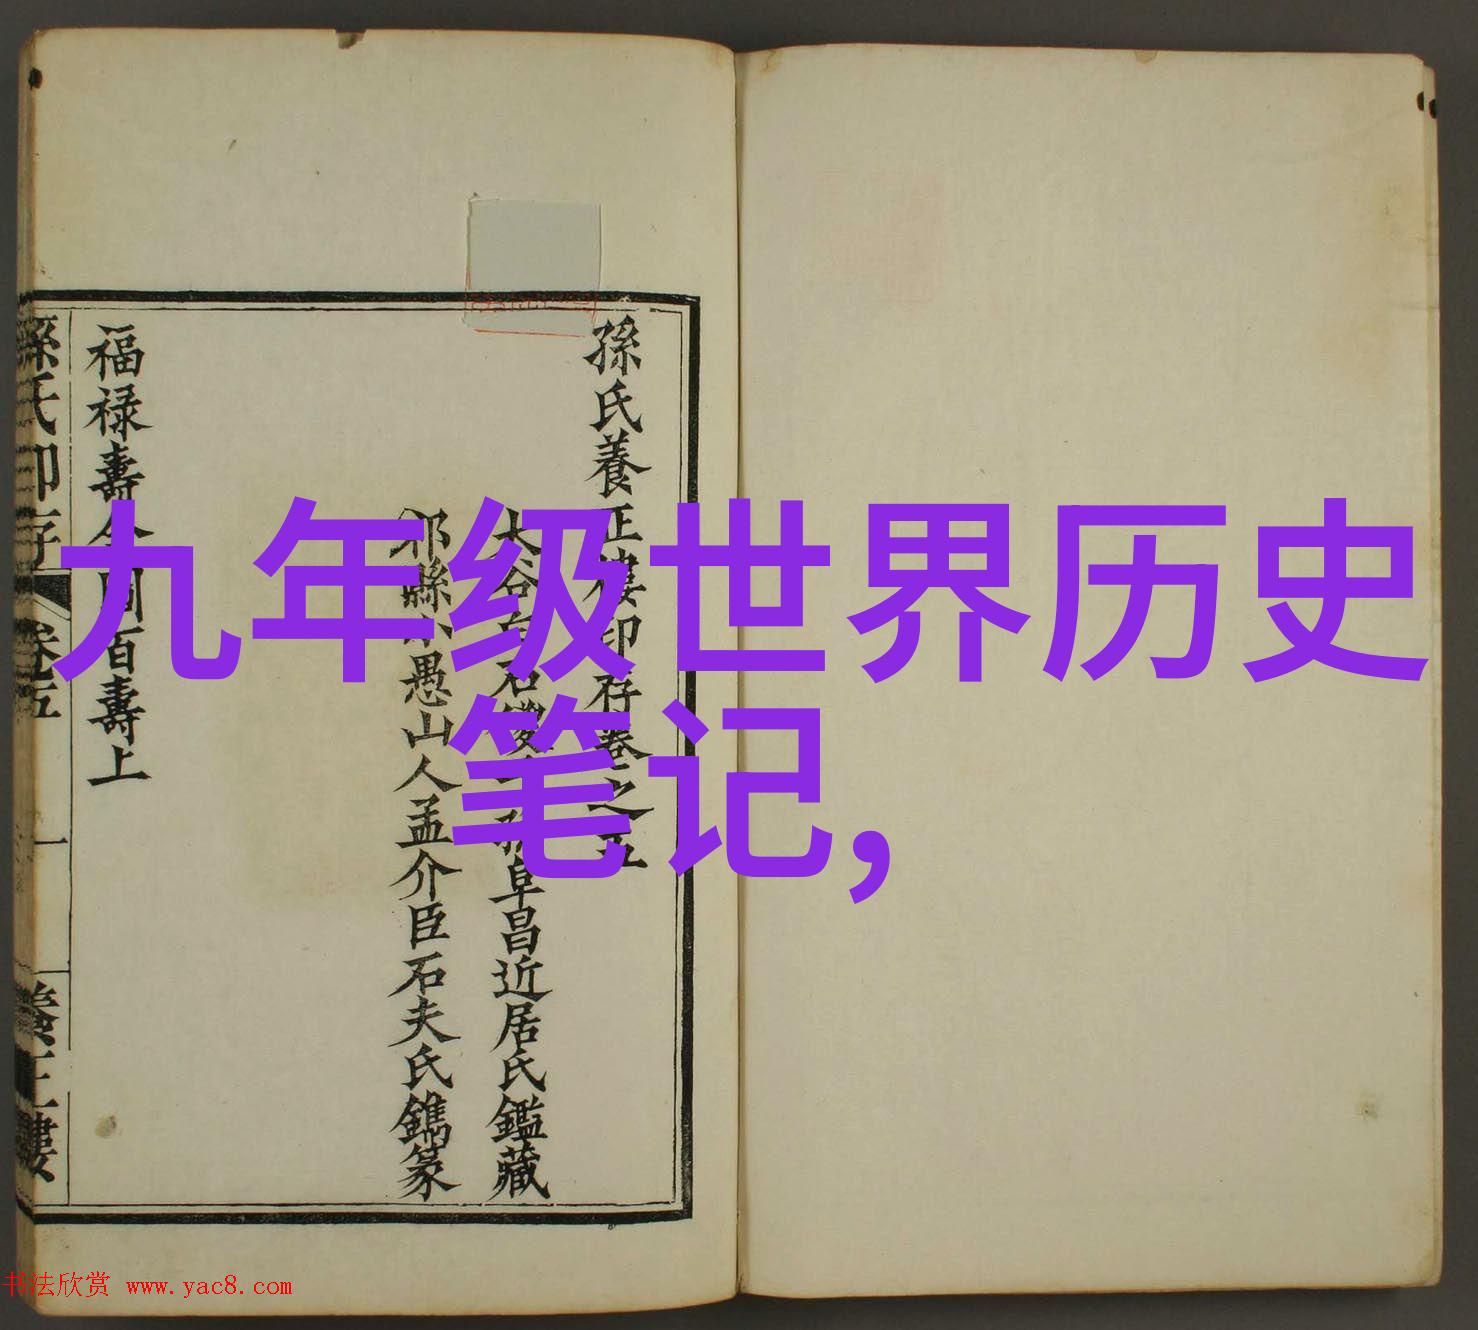 九年级世界历史
笔记,
孫氏養正樓印存卷之五
阜昌近居氏鑑藏
愚山人孟介臣石夫氏鐫篆
福禄壽全圖百壽上
孫氏印存
卷五
一
養正樓
书法欣赏 www.yac8.com